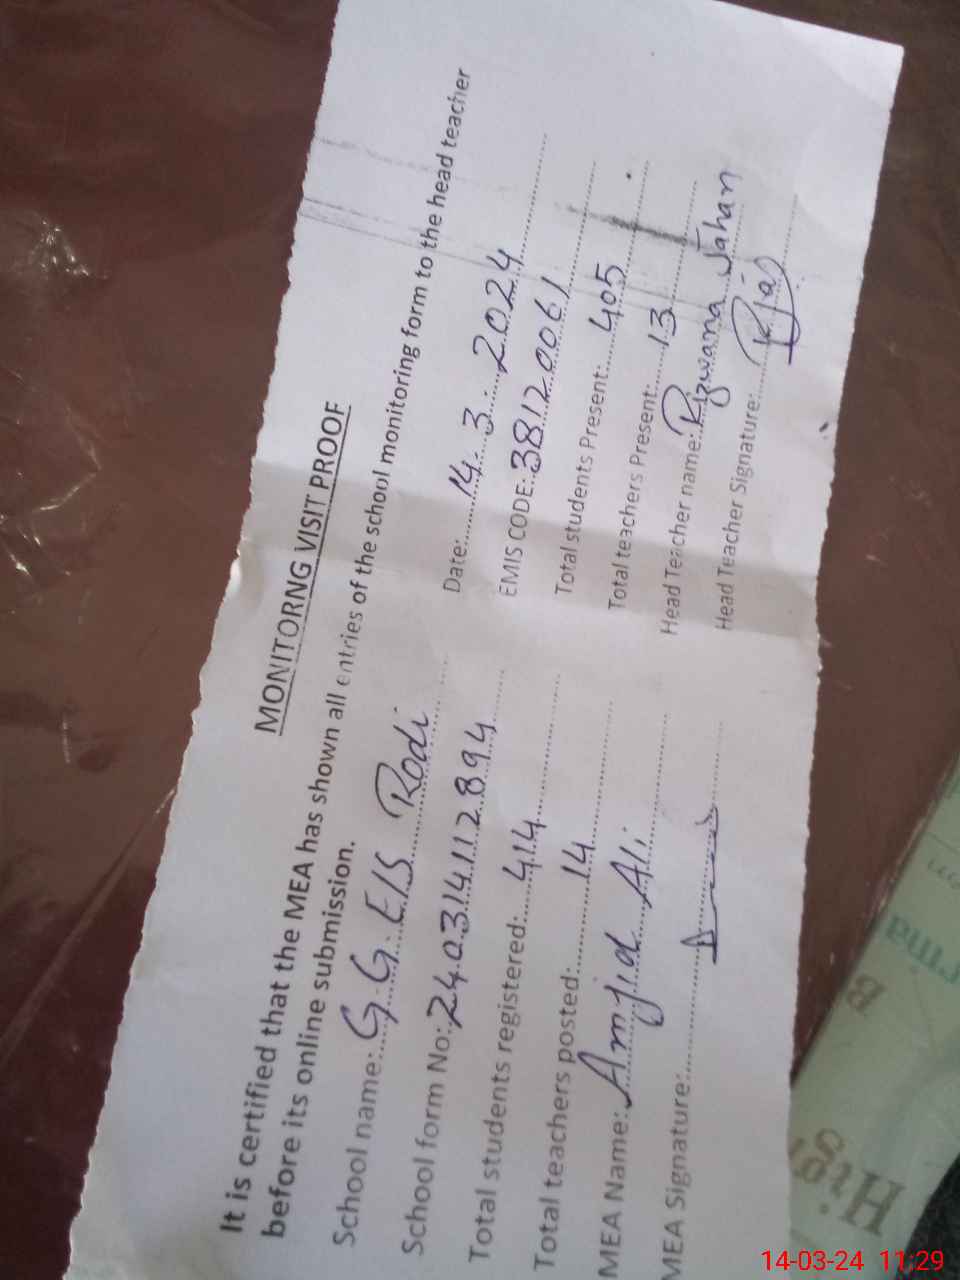 MONITORNG VISIT PROOF
It is certified that the MEA has shown all entries of the school monitoring form to the head teacher
before its online submission.
School name: G.G.E/S Rodi Date: 14.3.2024
School form No: 240314112894 EMIS CODE: 38120061
Total students registered: 414 Total students Present: 405
Total teachers posted: 14 Total teachers Present: 13
MEA Name: Amjid Ali Head Teacher name: Rizwana Jahan
MEA Signature: Head Teacher Signature:
High
B
14-03-24 11:29